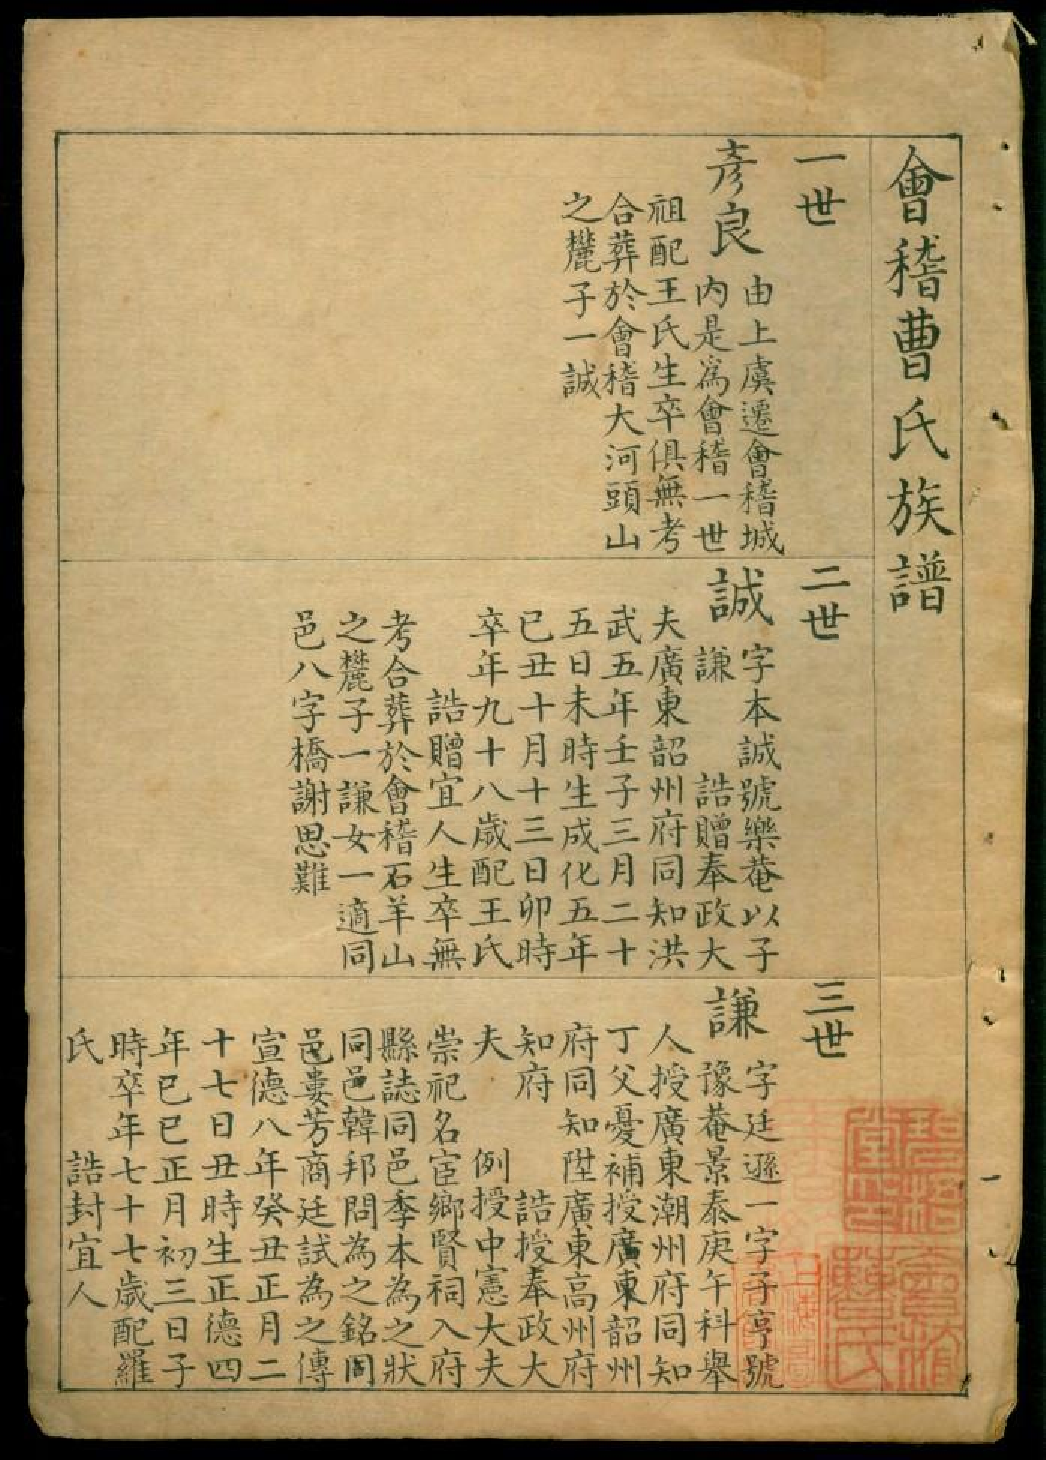 會稽曹氏族譜
一世
彥良
由上虞遷會稽城
內是爲會稽一世
祖配王氏生卒俱無考
合葬於會稽大河頭山
之麓子一誠
二世
誠
字本誠號樂菴以子
謙　　誥贈奉政大
夫廣東韶州府同知洪
武五年壬子三月二十
五日未時生成化五年
已丑十月十三日卯時
卒年九十八歲配王氏
誥贈宜人生卒無
考合葬於會稽石羊山
之麓子一謙女一適同
邑八字橋謝思難
三世
謙
字廷遜一字子亨號
豫菴景泰庚午科舉
人授廣東潮州府同知
丁父憂補授廣東韶州
府同知陞廣東高州府
知府　　誥授奉政大
夫　　例授中憲大夫
崇祀名宦鄉賢祠入府
縣誌同邑季本為之狀
同邑韓邦問為之銘同
邑婁芳商廷試為之傳
宣德八年癸丑正月二
十七日丑時生正德四
年已巳正月初三日子
時卒年七十七歲配羅
氏　　誥封宜人